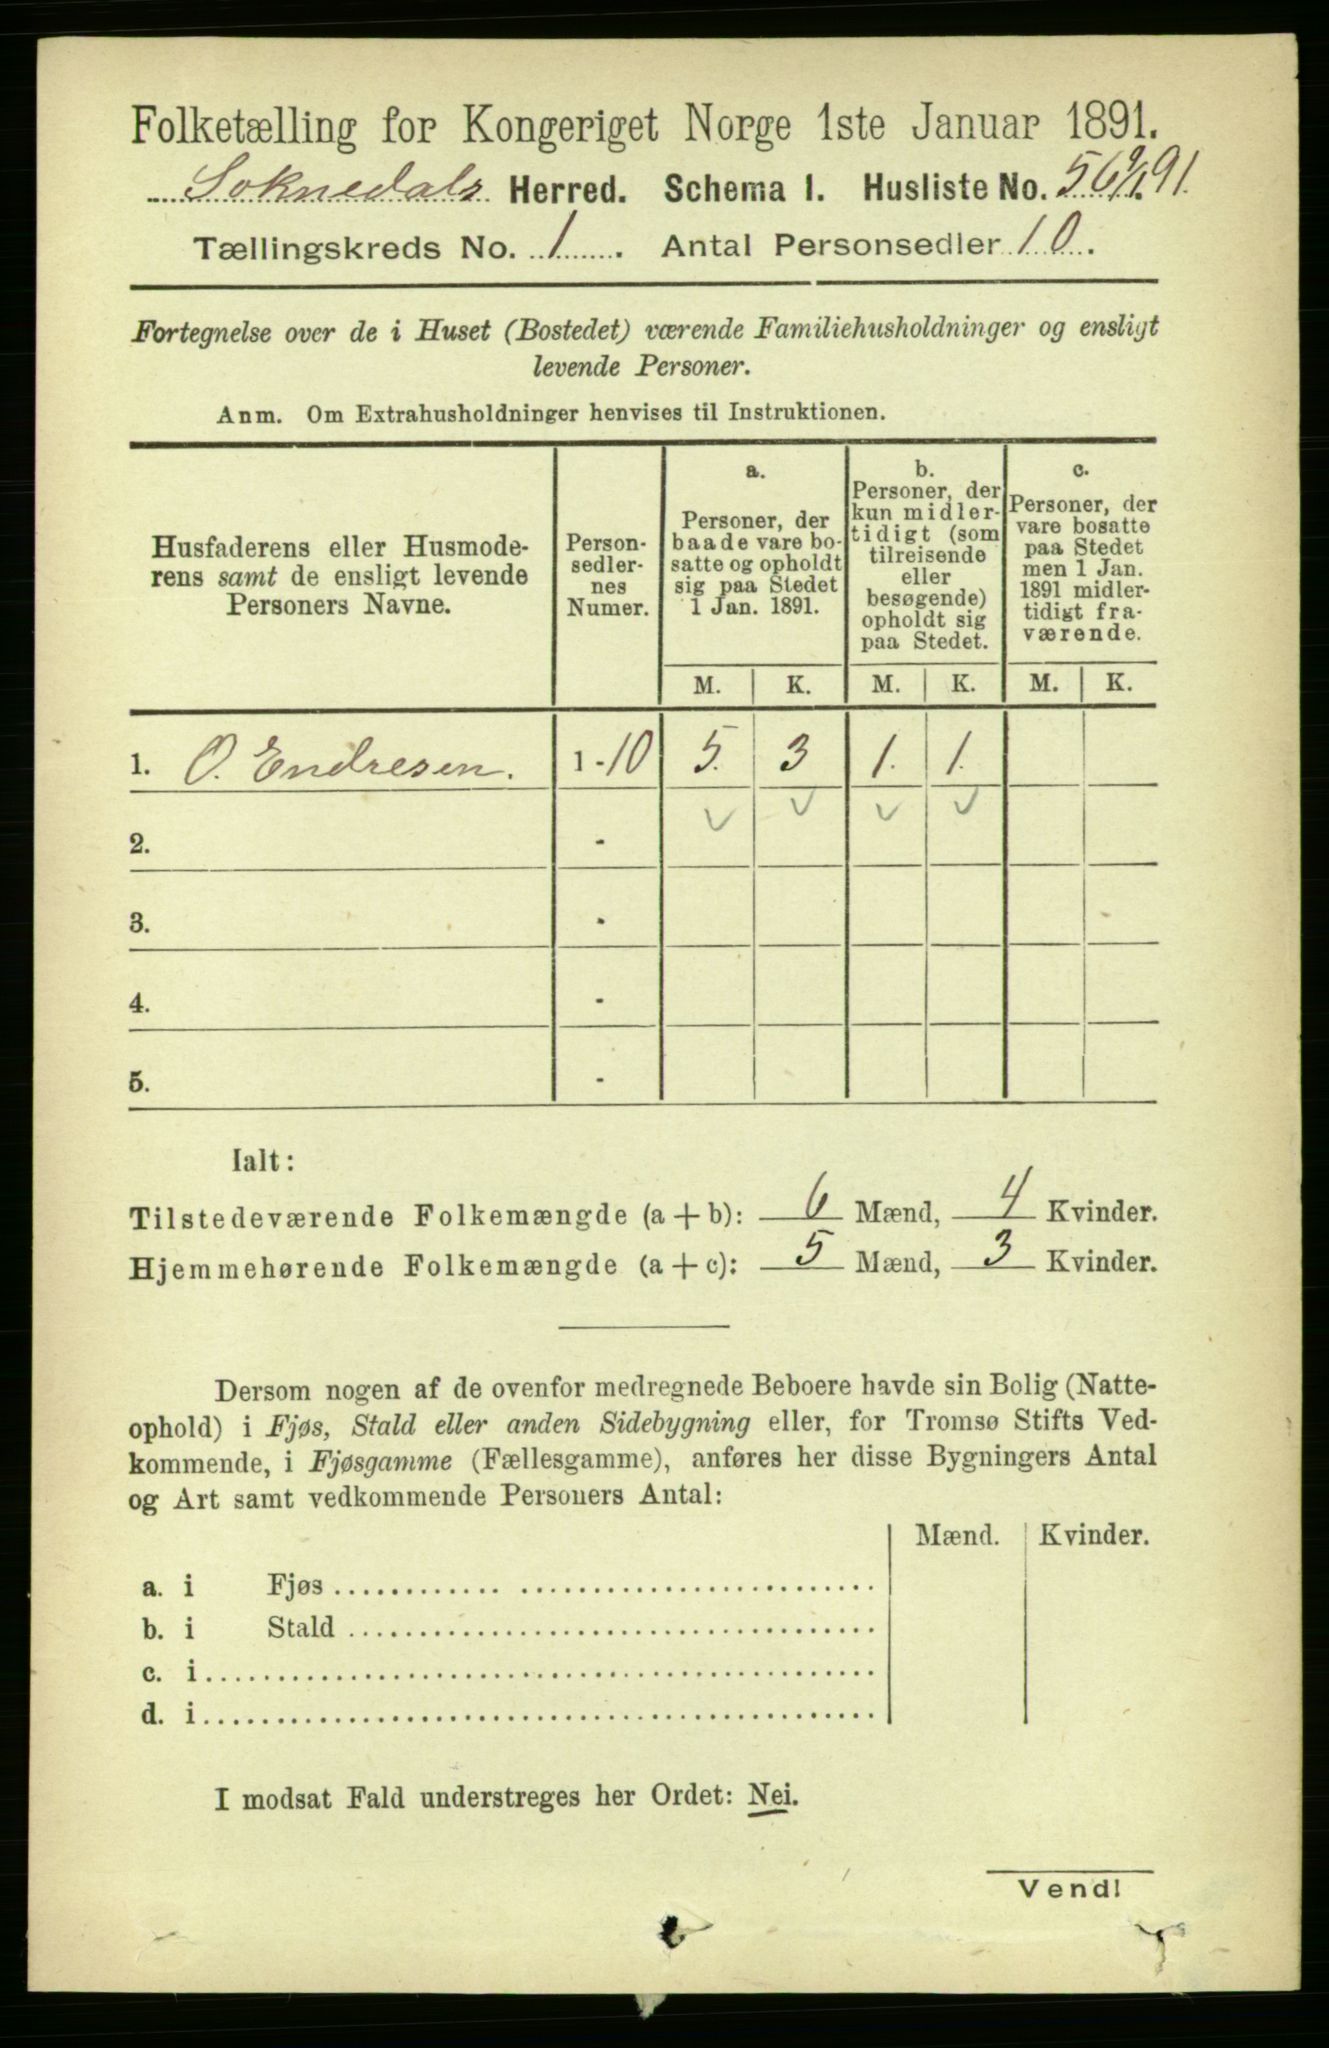 Folketælling for Kongeriget Norge 1ste Januar 1891.
Soknedals Herred. Schema 1. Husliste No. 56
Tællingskreds No. 1. Antal Personsedler 10.
Fortegnelse over de i Huset (Bostedet) værende Familiehusholdninger og ensligt
levende Personer.
Anm. Om Extrahusholdninger henvises til Instruktionen.
Husfaderens eller Husmode-
rens samt de ensligt levende
Personers Navne.
Person-
sedler-
nes
Numer.
a.
Personer, der
baade vare bo-
satte og opholdt
sig paa Stedet
1 Jan. 1891.
b.
Personer, der
kun midler-
tidigt (som
tilreisende
eller
besøgende)
opholdt sig
paa Stedet.
c.
Personer, der
vare bosatte
paa Stedet
men 1 Jan.
1891 midler-
tidigt fra-
værende.
M. K. M. K. M. K.
1. O. Endresen. 1-10 5. 3 1. 1.
2. -
3. -
4. -
5. -
Ialt:
Tilstedeværende Folkemængde (a + b): 6 Mænd, 4 Kvinder.
Hjemmehørende Folkemængde (a + c): 5 Mænd, 3 Kvinder.
Dersom nogen af de ovenfor medregnede Beboere havde sin Bolig (Natte-
ophold) i Fjøs, Stald eller anden Sidebygning eller, for Tromsø Stifts Ved-
kommende, i Fjøsgamme (Fællesgamme), anføres her disse Bygningers Antal
og Art samt vedkommende Personers Antal:
Mænd. Kvinder.
a. i Fjøs
b. i Stald
c. i
d. i
I modsat Fald understreges her Ordet: Nei.
Vend!